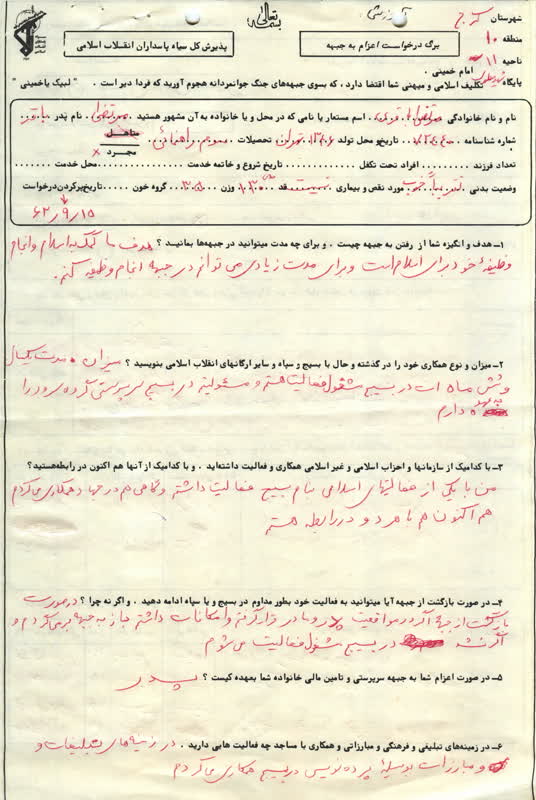 بسمه تعالی
شهرستان کرج
منطقه ۱۰
ناحیه ۱۱
پایگاه
برگ درخواست اعزام به جبهه
پذیرش کل سپاه پاسداران انقلاب اسلامی
امام خمینی . تکلیف اسلامی و میهنی شما اقتضا دارد ، که بسوی جبهه‌های جنگ جوانمردانه هجوم آورید که فردا دیر است . " لبیک یاخمینی "
نام و نام خانوادگی مرتضی اسم مستعار یا نامی که در محل و یا خانواده به آن مشهور هستید . مرتضی نام پدر باقر
شماره شناسنامه تاریخ و محل تولد تهران تحصیلات سوم راهنمائی متاهل مجرد ×
تعداد فرزند افراد تحت تکفل تاریخ شروع و خاتمه خدمت محل خدمت
وضعیت بدنی تقریباً خوب مورد نقص و بیماری نیست قد وزن گروه خون تاریخ پرکردن درخواست
۶۲/۹/۱۵
۱– هدف و انگیزه شما از رفتن به جبهه چیست . و برای چه مدت میتوانید در جبهه‌ها بمانید ؟ هدف ما کمک به اسلام و انجام
وظیفهٔ خود برای اسلام است و برای مدت زیادی می توانم در جبهه انجام وظیفه کنم.
۲– میزان و نوع همکاری خود را در گذشته و حال با بسیج و سپاه و سایر ارگانهای انقلاب اسلامی بنویسید ؟ میزان مدت یکسال
و شش ماه است در بسیج مشغول فعالیت هستم و مسئولیت در بسیج سرپرستی گروه سرود را
به عهده دارم
۳– با کدامیک از سازمانها و احزاب اسلامی و غیر اسلامی همکاری و فعالیت داشته‌اید . و با کدامیک از آنها هم اکنون در رابطه هستید؟
من با یکی از فعالیتهای اسلامی بنام بسیج فعالیت داشتم و گاهی هم در جهاد همکاری می کردم
هم اکنون هم با هر دو در رابطه هستم
۴– در صورت بازگشت از جبهه آیا میتوانید به فعالیت خود بطور مداوم در بسیج و یا سپاه ادامه دهید . و اگر نه چرا ؟ در صورت
بازگشت از جبهه اگر در موافقیت پدر و مادر قرار گرفتم و امکانات داشتم باز به جبهه بر می گردم و
اگر نشد در بسیج مشغول فعالیت می شوم
۵– در صورت اعزام شما به جبهه سرپرستی و تامین مالی خانواده شما بعهده کیست ؟ پدر
۶– در زمینه‌های تبلیغی و فرهنگی و مبارزاتی و همکاری با مساجد چه فعالیت هایی دارید . در زمینه های تبلیغات و
و مبارزات بوسیلهٔ پرده نویسی در بسیج همکاری می کردم